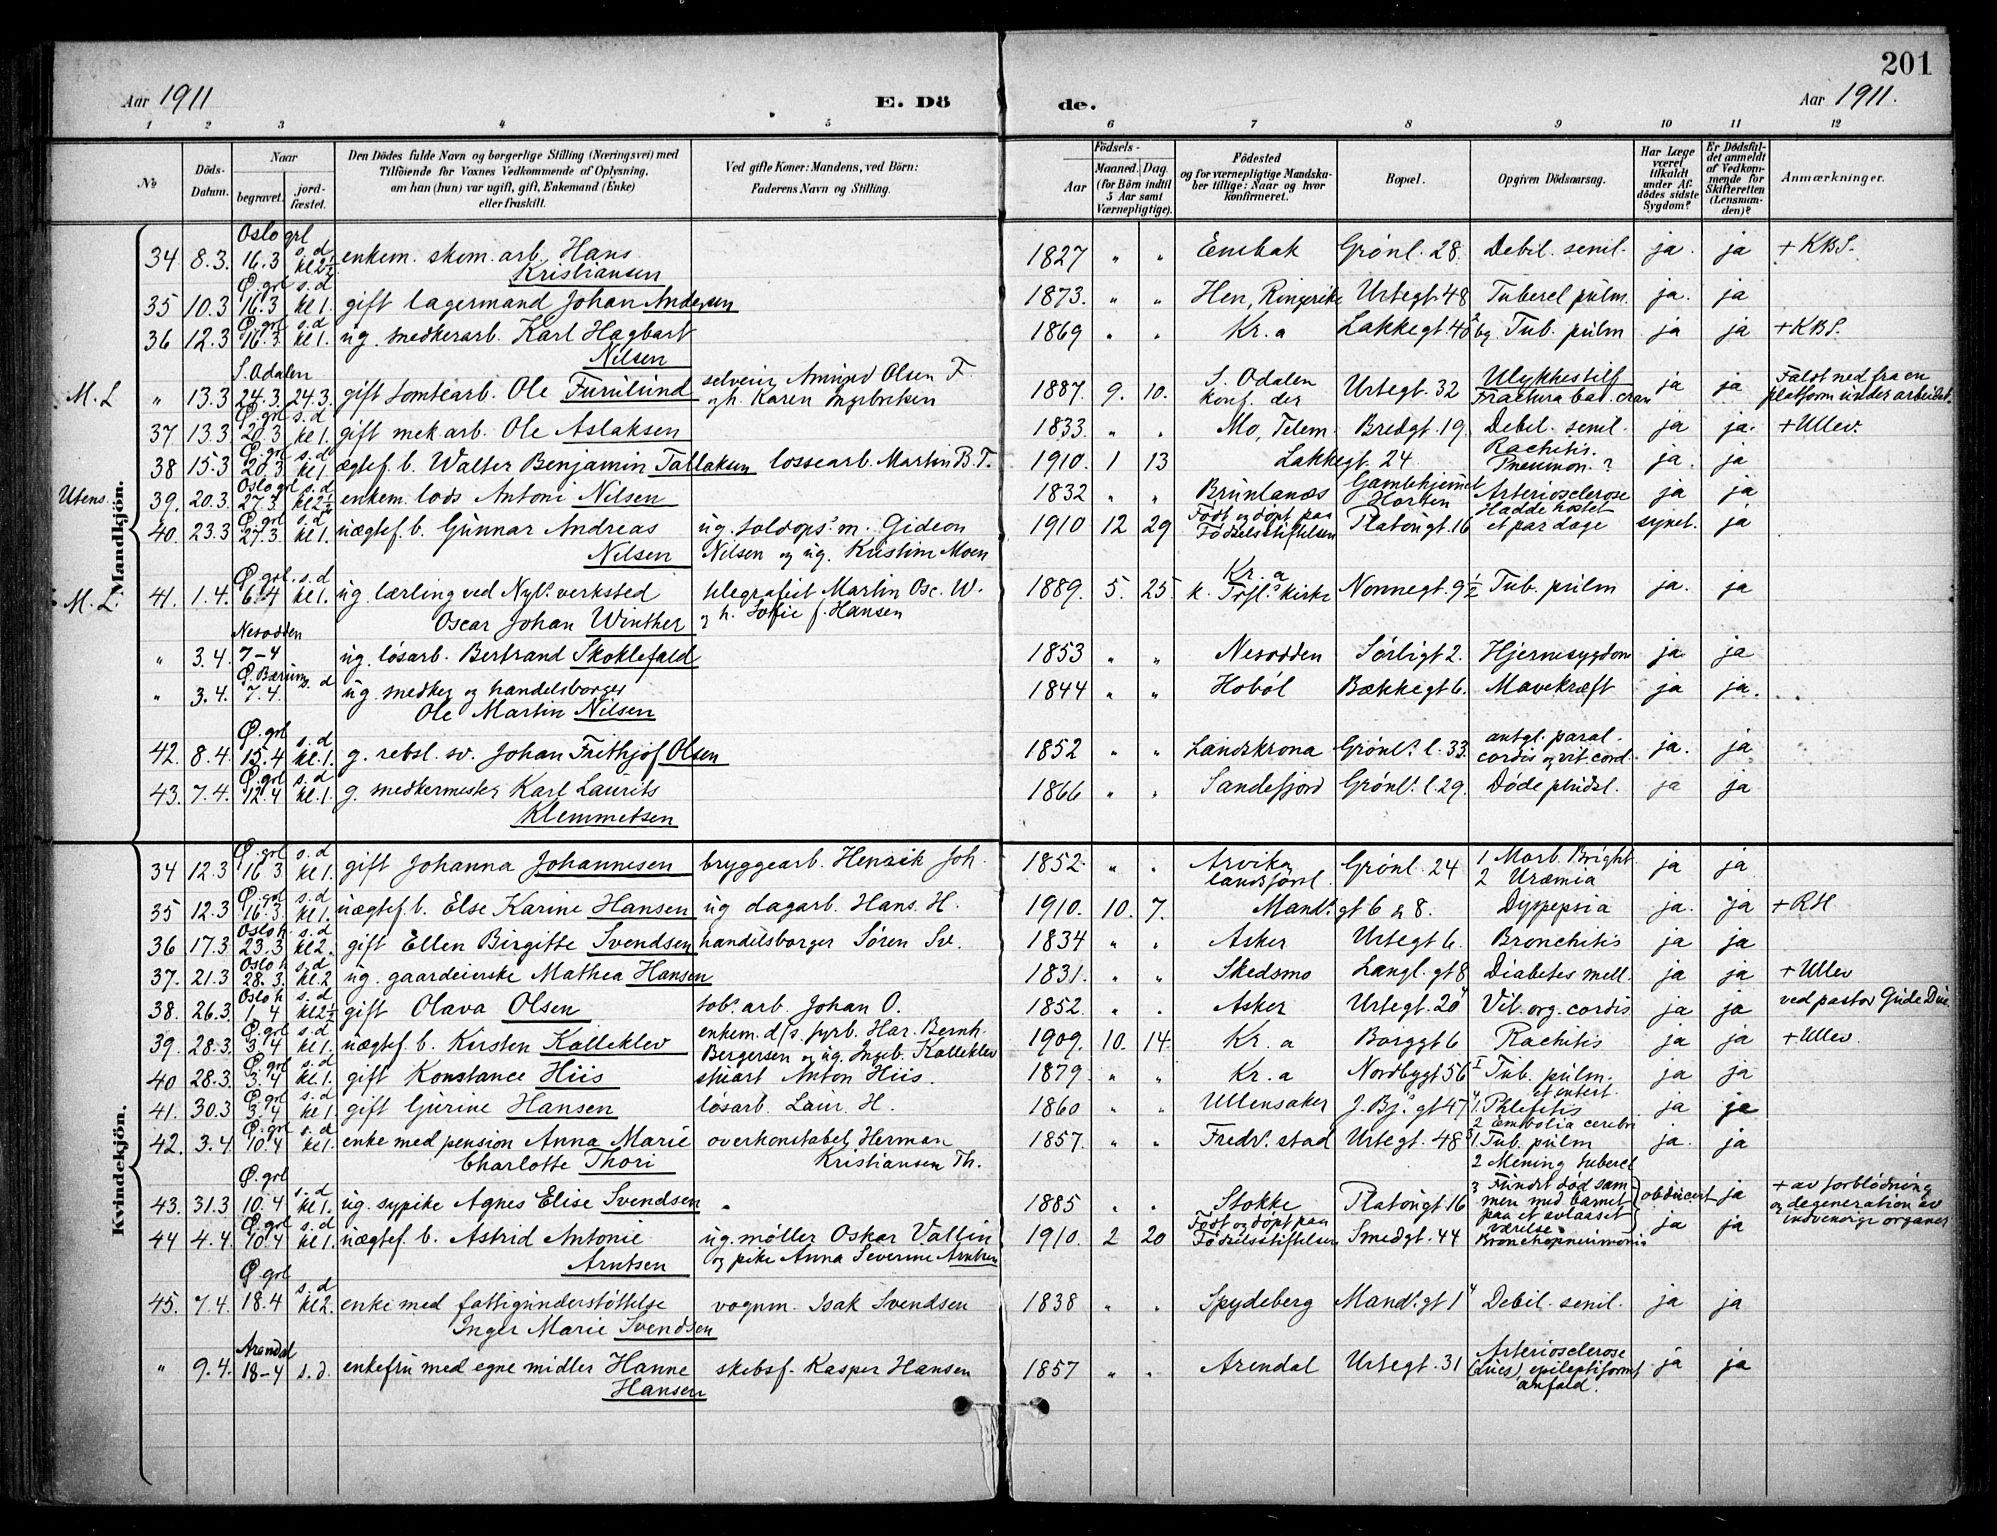 201
Aar 1911 E. Dö de. Aar 1911.
1 2 3 4 5 6 7 8 9 10 11 12
No Döds-Datum. Naar begravet. jord-fæstet. Den Dödes fulde Navn og borgerlige Stilling (Næringsvei) med Tilföiende for Voxnes Vedkommende af Oplysning, om han (hun) var ugift, gift, Enkemand (Enke) eller fraskilt. Ved gifte Koner: Mandens, ved Börn: Faderens Navn og Stilling. Födsels- Aar Maaned. Dag. (for Börn indtil 5 Aar samt Værnepligtige). Födested og for værnepligtige Mandskaber tillige: Naar og hvor konfirmeret. Bopæl. Opgiven Dödsaarsag. Har Læge været tilkaldt under Afdödes sidste Sygdom? Er Dödsfaldet anmeldt af Vedkommende for Skifteretten (Lensmanden)? Anmærkninger.
Mandkjön.
Oslo grl s.d
34 8.3. 16.3 kl 2½ enkem. skom. arb. Hans Kristiansen 1827 " " Enebak Grönl. 28. Debil. senil. ja. ja + KBS.
Ø. grl s.d
35 10.3 16.3 kl 1. gift lagermand Johan Andersen 1873. " " Hen, Ringerike Urtegt. 48 Tubercl pulm. ja. ja
Ø. grl s.d
36 12.3 16.3. kl 1. ug. snedkerarb. Karl Hagbart Nilsen 1869 " " Kr.a Lakkegt. 48 bg. Tub. pulm ja ja + KBS.
S. Odalen
M.L " 13.3 24.3. 24.3. gift tomtearb. Ole Furulund selveier Amund Olsen F. og h. Karen Ingebretsen 1887. 9. 10. S. Odalen konf. der Urtegt. 32 Ulykkestilf Fractura bas. cran ja ja Faldt ned fra en platform under arbeidet.
Ø. grl s.d
37 13.3 20.3 kl 1. gift mek. arb. Ole Aslaksen 1833. " " Mo, Telem. Bredgt. 19. Debil. senil. ja ja. + Ullev.
Ø. grl s.d
38 15.3 20.3 kl 1. ægtef. b. Walter Benjamin Tallaksen lossearb. Martin B. T. 1910. 1 13 Lakkegt. 24 Rachitis. Pneumon.? ja. ja
Oslo grl s.d
Utens. 39. 20.3. 27.3. kl 2½ enkem. lods Antoni Nilsen 1832 " " Brunlanæs Gamlehjemmet Horten Arteriosclerose ja ja
Ø. grl s.d
40. 23.3 27.3. kl 1. uægtef. b. Gunnar Andreas Nilsen ug. toldops. m. Gideon Nilsen og ug. Kristine Moen 1910 12 29 Födt og döpt paa Födselsstiftelsen Platougt. 16 Hadde hostet et par dage synet. ja
Ø. grl. s.d
M.L. 41. 1.4. 6.4 kl 1. ug. lærling ved Nyl. verksted Oscar Johan Winther telegrafist Martin Osc. W. og h. Sofie f. Hansen 1889. 5. 25. Kr.a k. Trefl.s kirke Nonnegt. 9½ Tub. pulm ja. ja
Nesodden
" 3.4. 7-4 ug. lösarb. Bertrand Skoklefald 1853 " " Nesodden Sörligt 2. Hjernesygdom ja. ja
Ø. Bærum s.d
" 3.4. 7.4 ug. snedker og handelsborger Ole Martin Nilsen 1844 " " Hoböl Bækkegt 6. Mavekræft ja ja.
Ø. grl s.d
42. 8.4. 15.4 kl. 1. g. rebsl. sv. Johan Frithjof Olsen 1852 " " Landskrona Grönl.s l. 33. antgl. paral. cordis og vit. cord. ja. ja
Ø. grl s.d
43. 7.4. 12.4 kl. 1. g. snedkermester Karl Laurits Klemmetsen 1866 " " Sandefjord Grönl.s l. 29. Döde pludsl. ja ja
Kvindekjön.
Ø. grl s.d
34 12.3 16.3 kl 1. gift Johanna Johannesen bryggearb. Henrik Joh. 1852. " " Arvika landsförs. Grönl. 24 1 Morb. Bright. 2 Uræmia ja ja
Ø. grl s.d
35 12.3 16.3. kl 1. uægtef. b. Else Karine Hansen ug dagarb. Hans H. 1910. 10. 7. Mand.s gt 6 & 8. Dyspepsia ja. ja + RH
Oslo h. s.d
36 17.3 23.3 kl 2. gift Ellen Birgitte Svendsen handelsborger Sören Sv. 1834 " " Asker Urtegt 6. Bronchitis ja ja
Oslo h s.d
37. 21.3 28.3. kl 2 ug. gaardeierske Mathea Hansen 1831. " " Skedsmo Langl. gt 8 Diabetes mell. ja ja + Ullev
Oslo h s.d
38. 26.3. 1.4 kl 2½ gift Olava Olsen tob.s arb. Johan O. 1852. " " Asker Urtegt. 20 Vit. org. cordis ja ja ved pastor Gude Due
Ø. grl s.d
39. 28.3. 3.4 kl 1. uægtef. b. Kirsten Kolleklev enkem. d/s. fyrb. Har. Bernh. Bergersen og ug. Ingeb. Kolleklev 1909. 10. 14. Kr.a Borggt 6 Rachitis ja ja + Ullev.
Ø. grl s.d
40 28.3. 3.4 kl. 1. gift Konstance Hiis stuart Anton Hiis. 1879 " " Kr.a Nordbygt 56 I Tub. pulm. et entert. ja ja
Ø. grl s.d
41. 30.3 3.4 kl 1. gift Gurine Hansen lösarb. Laur. H. 1860 " " Ullensaker J. Bj.s gt 47 1. Phlefitis 2 Embolia cerebri ja ja
Ø. grl s.d
42. 3.4 10.4 kl 1. enke med pension Anna Marie Charlotte Thori overkonstabel Herman Kristiansen Th. 1857. " " Fredr. stad Urtegt. 48 1. Tub. pulm 2 Mening tubercl ja. ja
Ø. grl s.d
43. 31.3 10.4 kl 1. ug. sypike Agnes Elise Svendsen " 1885 " " Stokke Platougt 16 Fundet död sammen med barnet paa et avlaaset værelse. obducert ja + av forblödning og degeneration av indvendige organer
Ø. grl s.d
44 4.4. 10.4 kl 1. uægtef. b. Astrid Antonie Arntsen ug. möller Oskar Vallin og pike Anna Severine Arntsen 1910. 2 20 Födt og döpt paa Födselsstiftelsen Smedgt. 44 Bronchopneumonia ja ja
Ø. grl s.d
45. 7.4. 18.4 kl 2. enke med fattigunderstöttelse Inger Marie Svendsen vognm. Isak Svendsen 1838 " " Spydeberg Mand.s gt 1 Debil. senil. ja ja
Arendal
" 9.4. 18-4 s.d. enkefru med egne midler Hanne Hansen skibsf. Kasper Hansen 1857 " " Arendal Urtegt. 31 Arteriosclerose (Lues), epileptiforme anfald. ja ja